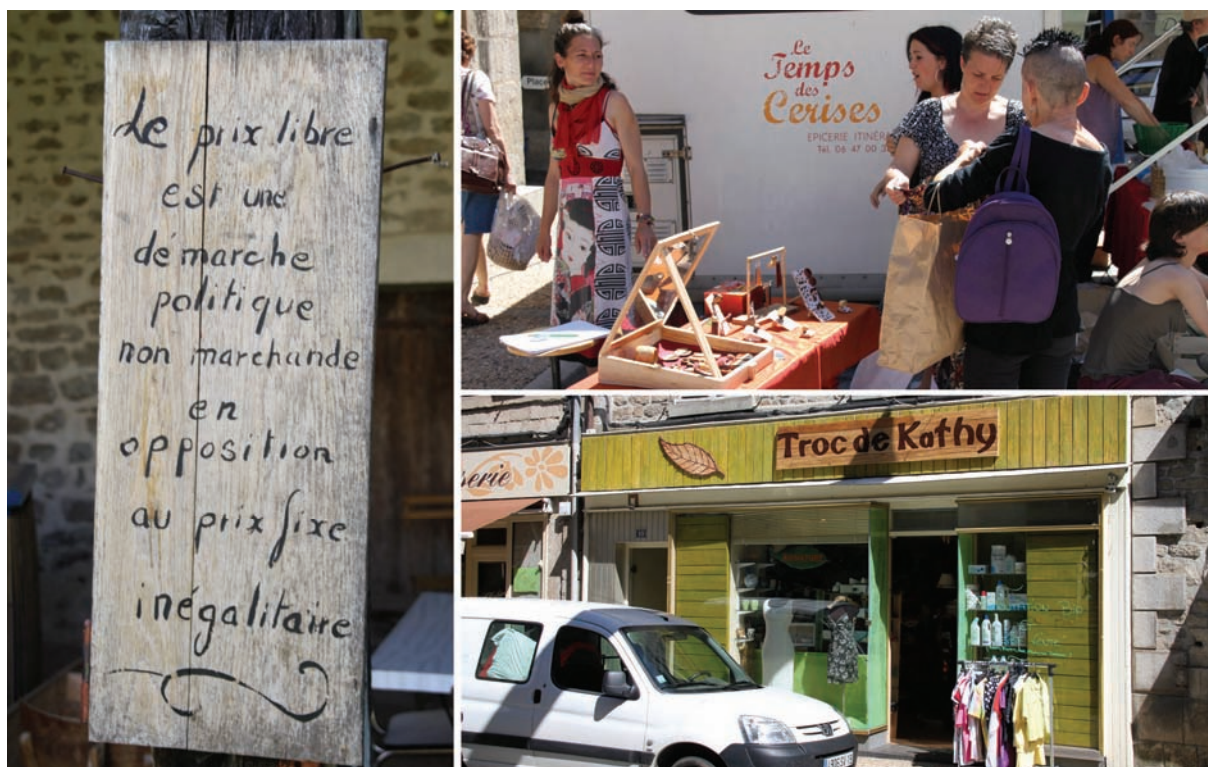 Le prix libre
est une
demarche
politique
non marchande
en
opposition
au prix fixe
inégalitaire
Place
Le
Temps
des
Cerises
EPICERIE ITINÉRA
Tél. 06 47 00 3
serie
Troc de Kathy